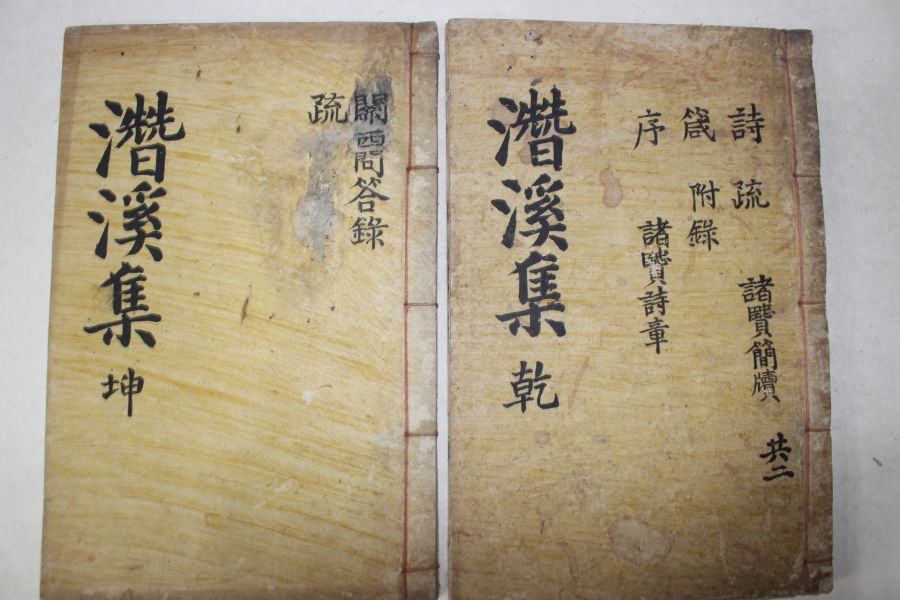 潛溪集 乾
詩 疏 諸贒簡牘
箴 附錄
序 諸贒詩章
共二
潛溪集 坤
關西問答錄
疏